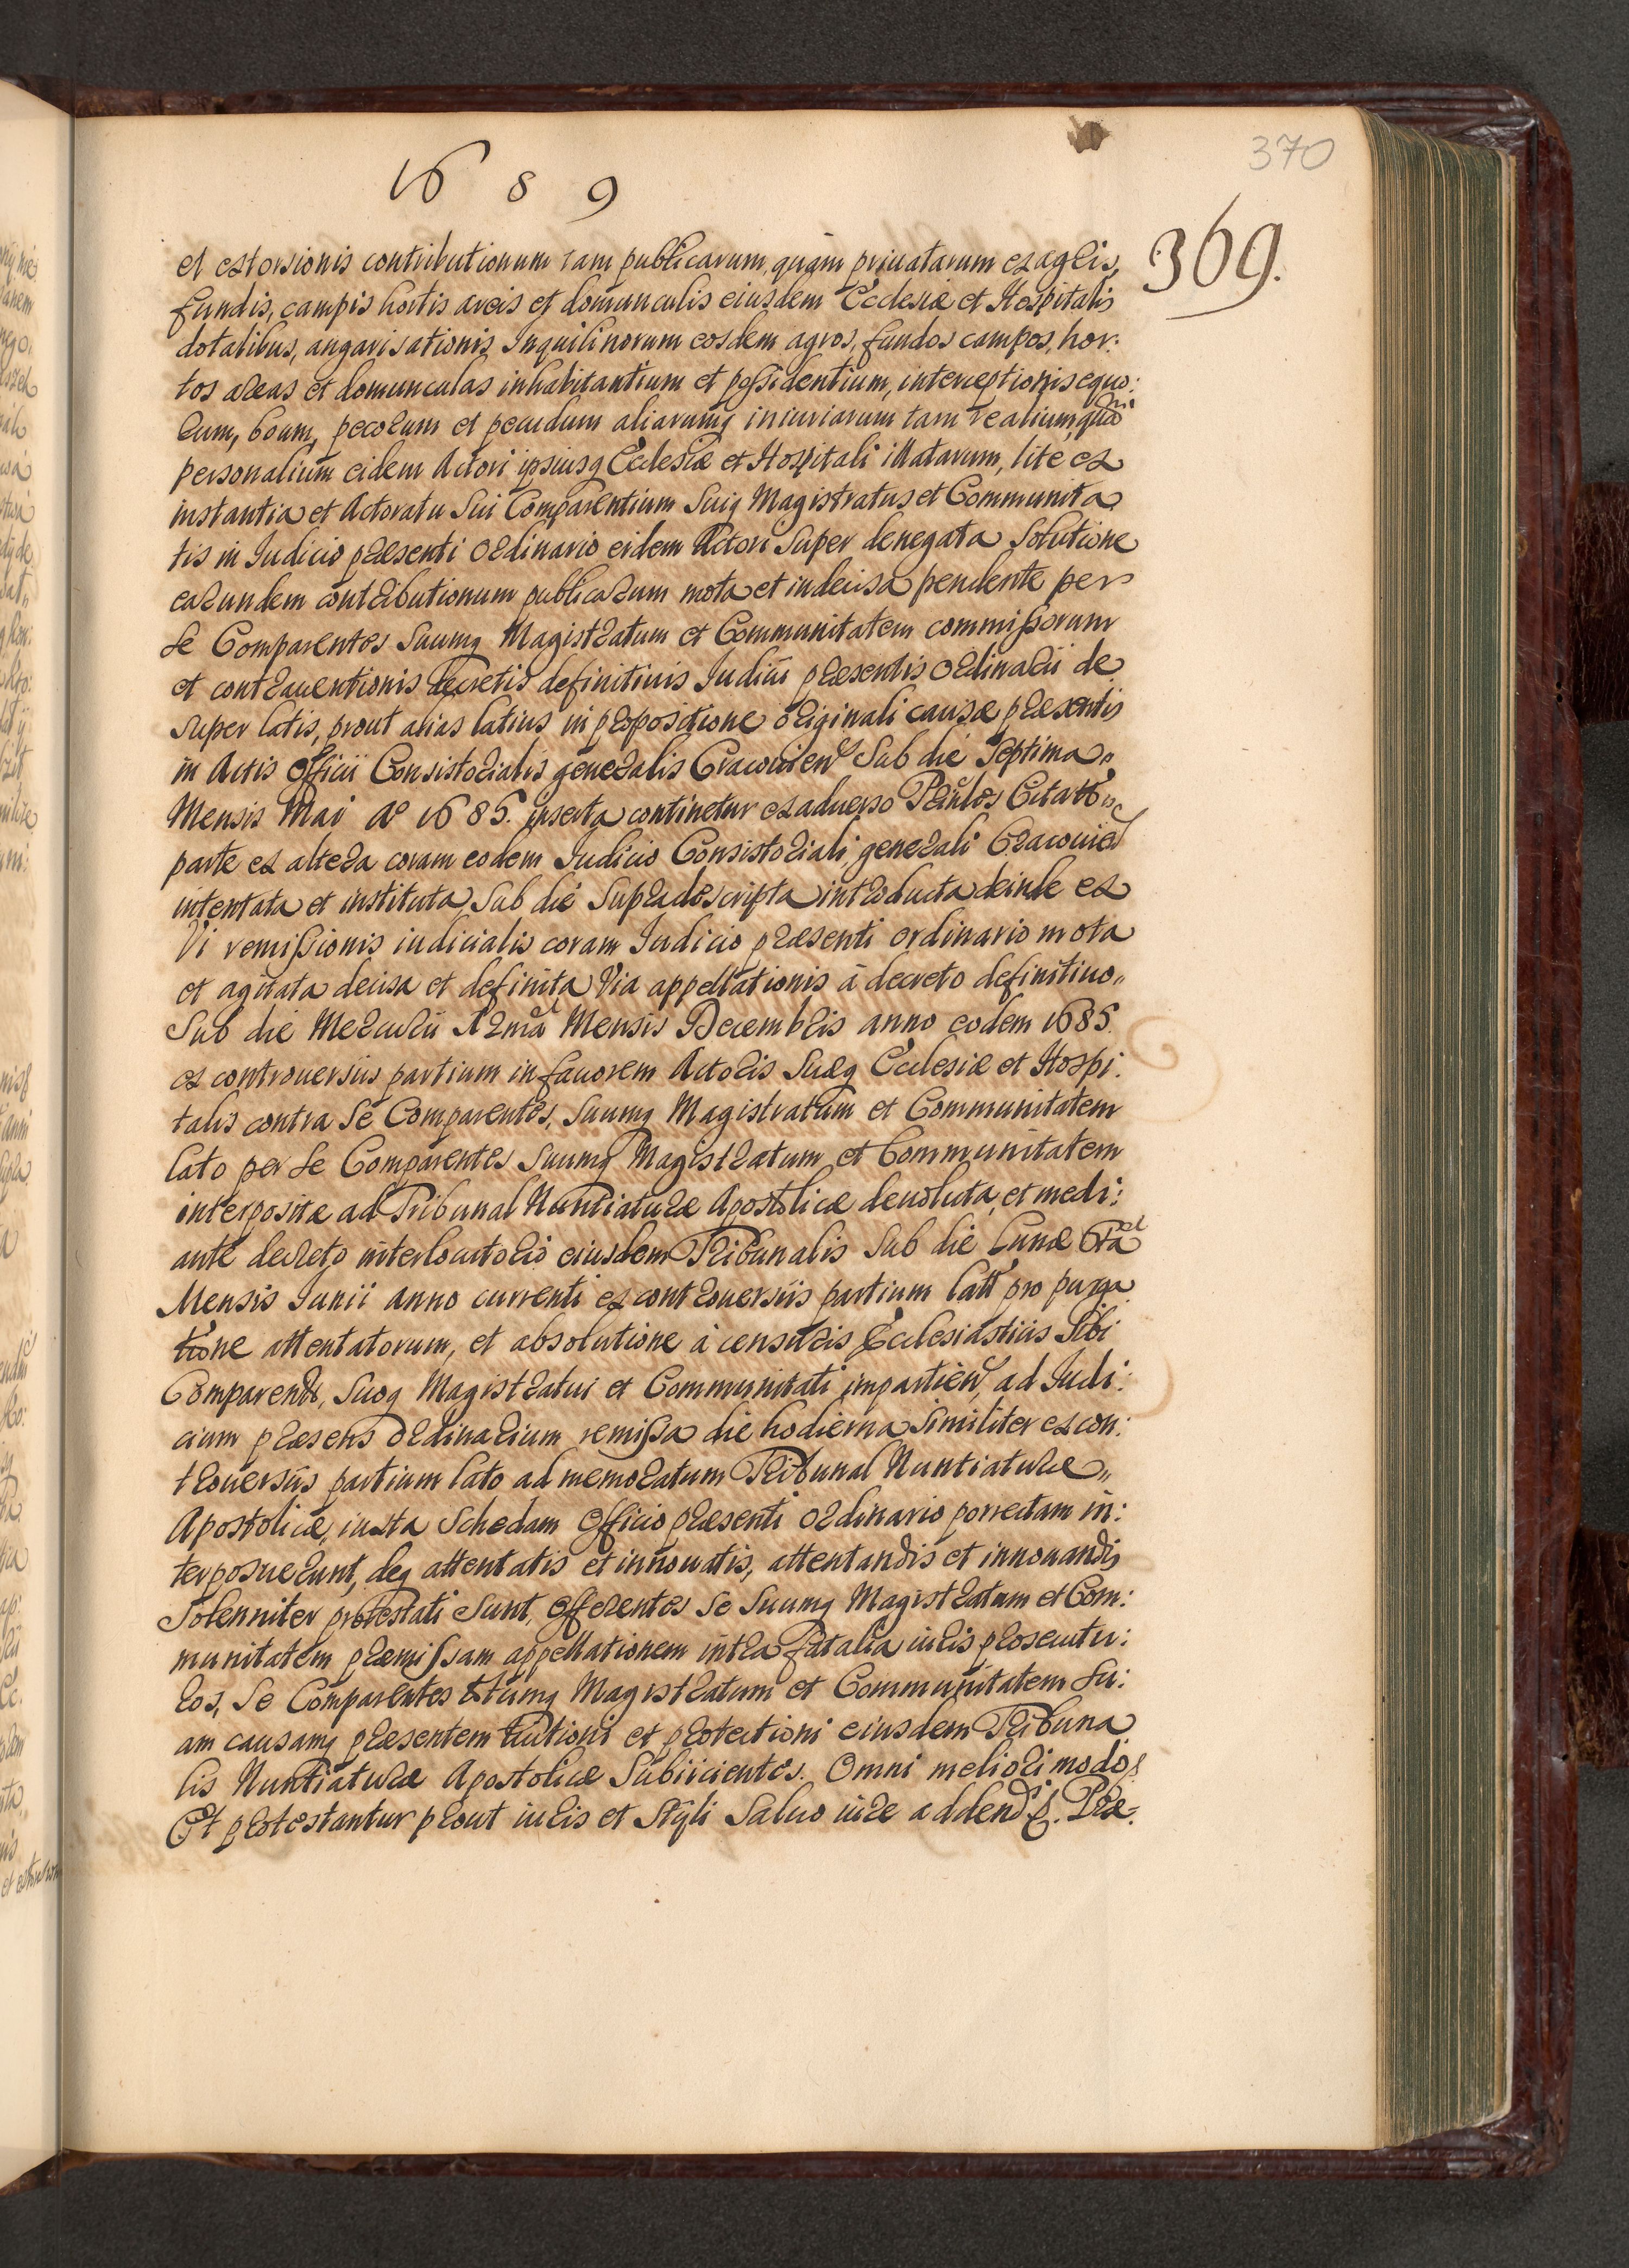 370
1689
369.
et extorsionis contributionum tam publicarum, quam priuatarum ex agris,
fundis, campis hortis areis et domunculis eiusdem Ecclesiæ et Hospitalis
dotalibus, angarisationis Inquilinorum eosdem agros, fundos campos, hor:
tos areas et domunculas inhabitantium et possidentium, interceptionis equo:
rum, boum, pecorum et pecudum aliarumq iniuriarum tam realium, quam
personalium eidem Actori ipsiusq Ecclesiæ et Hospitali illatarum, lite ex
instantia et Actoratu Sui Comparentium Suiq Magistratus et Communita
tis in Iudicio præsenti ordinario eidem Actori Super denegata Solutione
earundem contributionum publicarum mota et indecisa pendente per
se Comparentes Suumq Magistratum et Communitatem commissorum
et contrauentionis decretis definitiuis Iudicii præsentis ordinarii de
super latis, prout alias latius in propositione originali causæ præsentis
in Actis Officii Consistorialis generalis Cracouien Sub die Septima
Mensis Mai Aº 1685. inserta continetur ex aduerso Citatos
parte ex altera coram eodem Iudicio Consistoriali generali Cracouien
intentata et instituta, Sub die Supradescripta introducta deinde ex
Vi remissionis iudicialis coram Iudicio præsenti ordinario mota
et agitata decisa et definita Via appellationis à decreto definitiuo
Sub die Mercurii Mensis Decembris anno eodem 1685.
ex controuersiis partium in fauorem Actoris Suæq Ecclesiæ et Hospi:
talis contra Se Comparentes, Suumq Magistratum et Communitatem
lato per se Comparentes Suumq Magistratum et Communitatem
interpositæ ad Tribunal Nuntiaturæ Apostolicæ deuoluta, et medi:
ante decreto interlocutorio eiusdem Tribunalis Sub die Lunæ
Mensis Iunii anno currenti ex controuersiis partium latt pro purga
tione attentatorum, et absolutione à censuris Ecclesiasticis Sibi
Comparentt, Suoq Magistratui et Communitati impartien, ad Iudi:
cium præsens ordinarium remissa die hodierna Similiter ex con:
trouersiis partium lato ad memoratum Tribunal Nuntiaturæ
Apostolicæ, iuxta Schedam Officio præsenti ordinario porrectam in:
terposuerunt, deq attentatis et innouatis, attentandis et innouandis
Solenniter protestati Sunt, Offerentes Se Suumq Magistratum et Com:
munitatem præmissam appellationem intra fatalia iuris prosecutu:
ros, Se Comparentes Suumq Magistratum et Communitatem Su:
am causamq præsentem tuitioni et protectioni eiusdem Tribuna
lis Nuntiaturæ Apostolicæ Subiicientes. Omni meliori modo
Et protestantur prout iuris et Styli Saluo iure addend &. Præ: